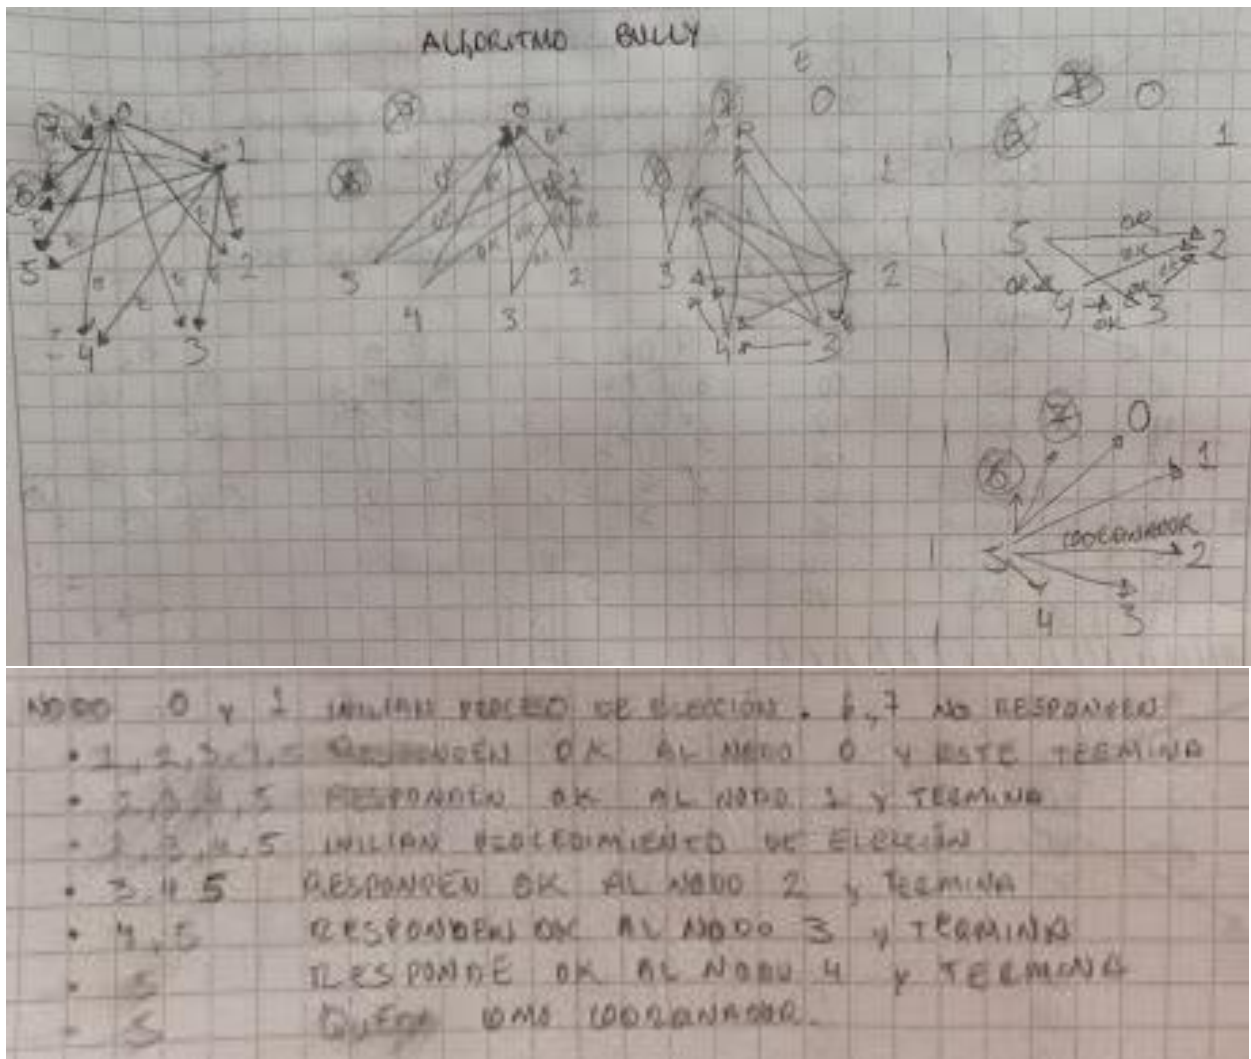 ALGORITMO BULLY
E
7 E 0 1
6
5 2
4 3
E E E E E E
7 0
6 1
5 4 3 2
OK OK OK OK OK OK OK
7 0
6 1
5 2
4 3
7 0
6 1
5 OK 2
OK OK OK
4 OK 3
OK
7 0
6 1
5 COORDINADOR 2
4 3
NODO 0 y 1 INICIAN PROCESO DE ELECCIÓN. 6,7 NO RESPONDEN
• 1,2,3,4,5 RESPONDEN OK AL NODO 0 y ESTE TERMINA
• 2,3,4,5 RESPONDEN OK AL NODO 1 y TERMINA
• 2,3,4,5 INICIAN PROCEDIMIENTO DE ELECCIÓN
• 3,4,5 RESPONDEN OK AL NODO 2 y TERMINA
• 4,5 RESPONDEN OK AL NODO 3 y TERMINA
• 5 RESPONDE OK AL NODO 4 y TERMINA
• 5 COMO COORDINADOR.